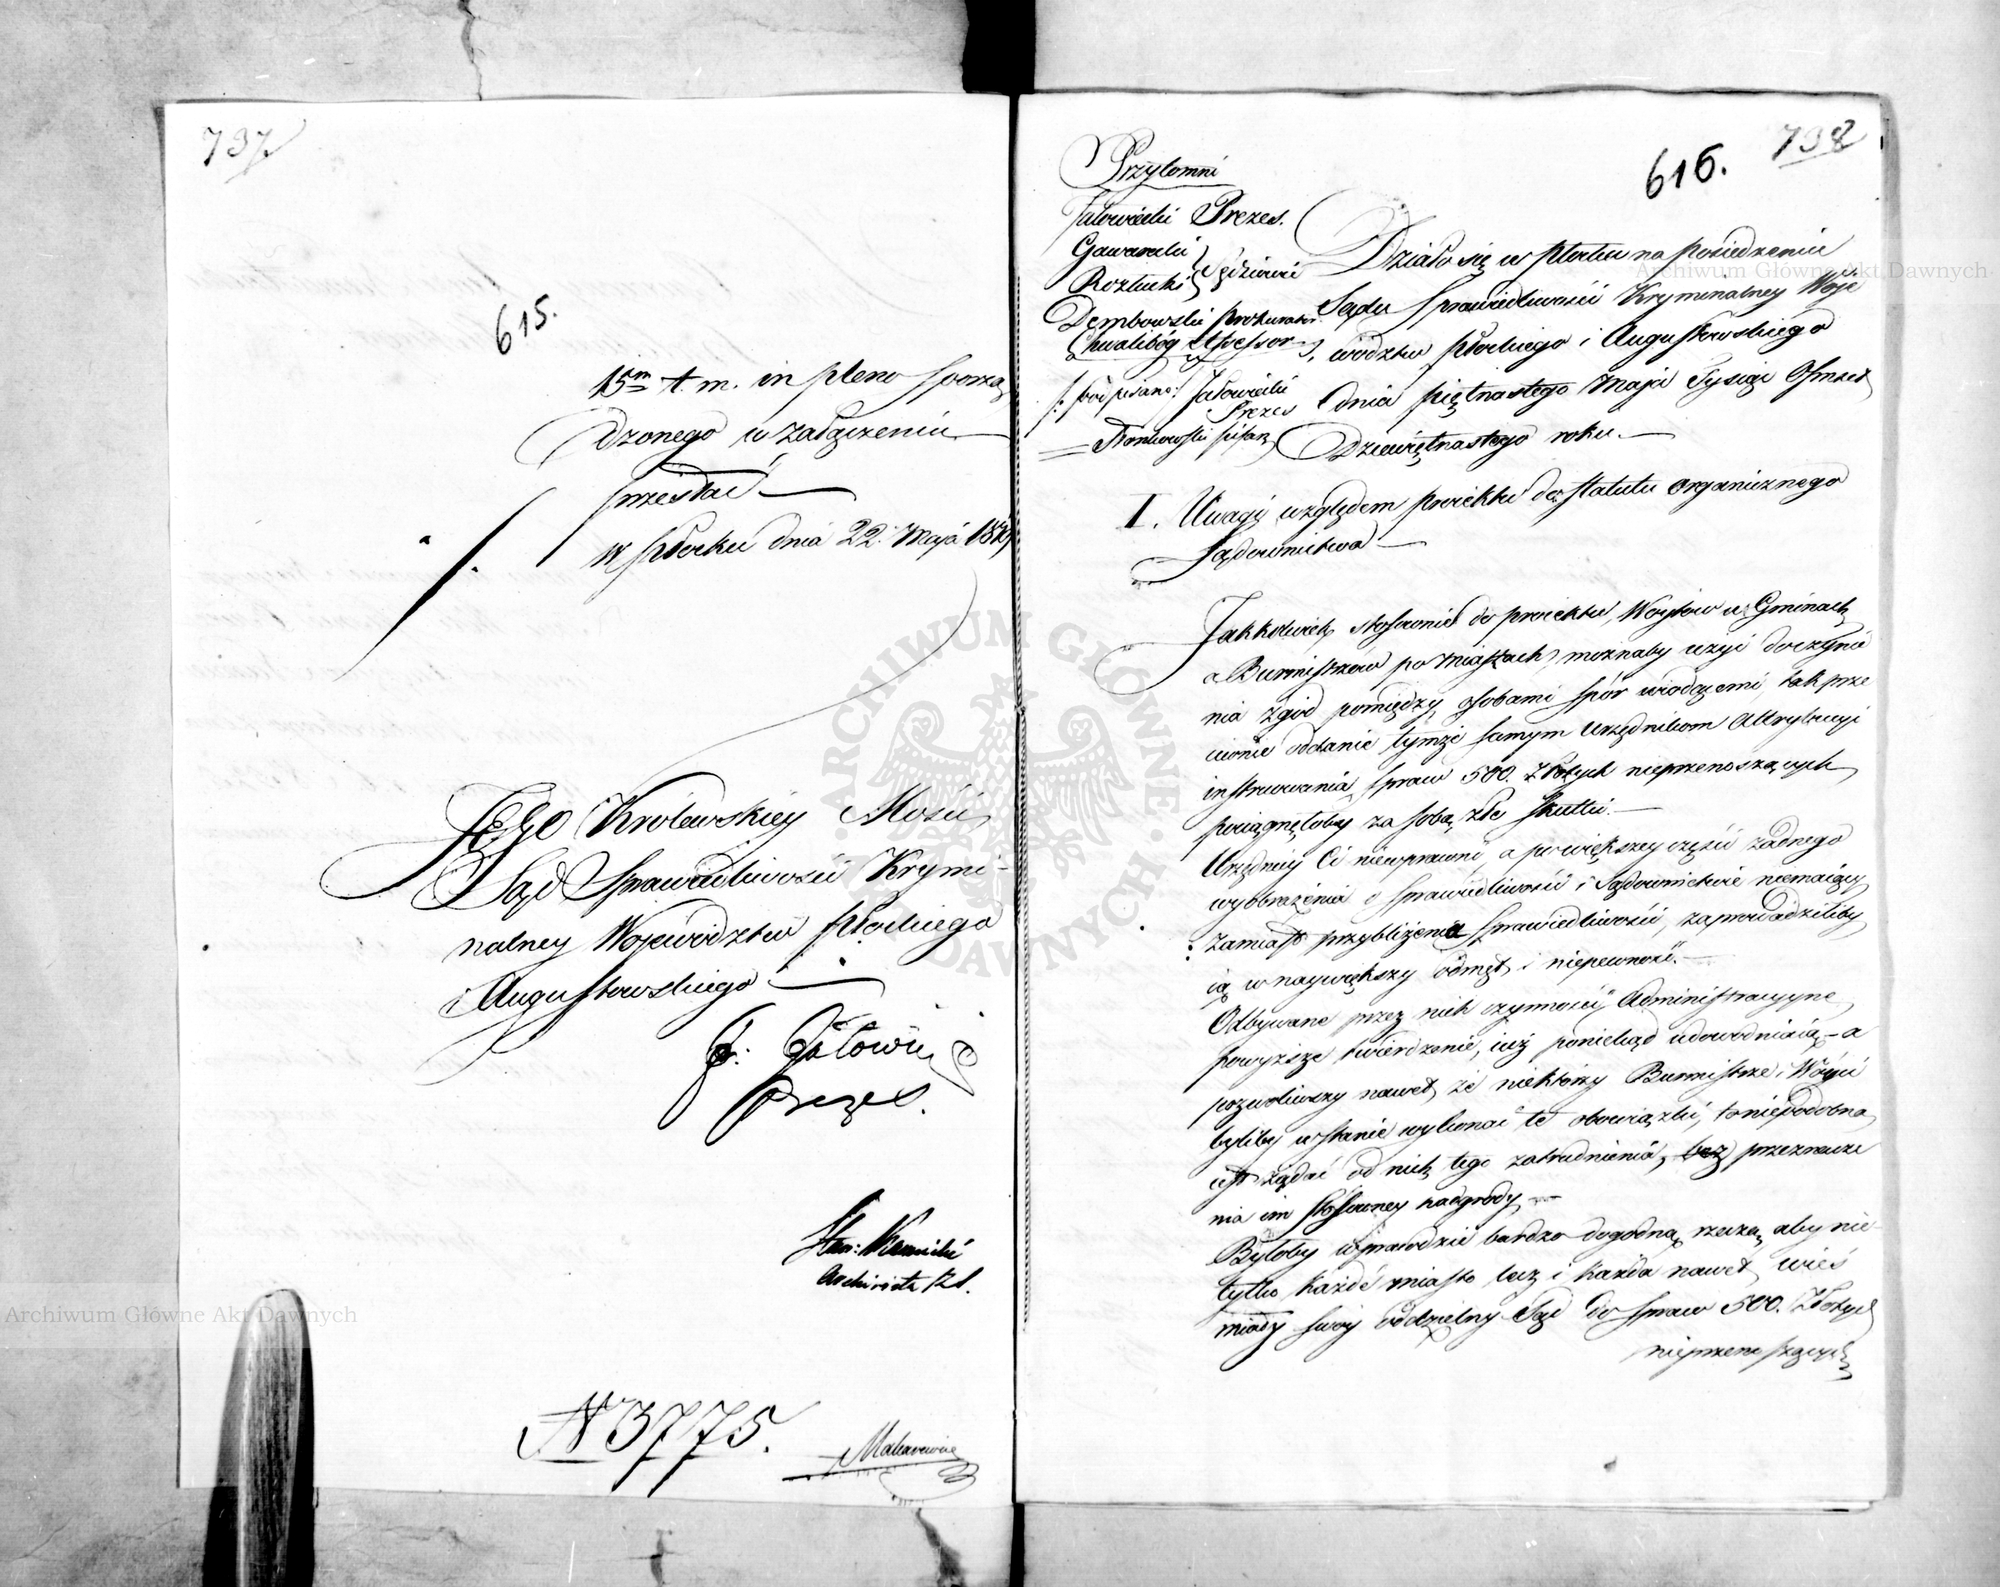 737.
615.
15m t. m. in pleno sporzą
dzonego w załączeniu
przesłać
w Płocku dnia 22. Maja 1819
JEGO Królewskiey Mości
Sąd Sprawiedliwości Krymi-
nalney Województw Płockiego
i Augustowskiego
Prezes.
Archiwista
N 3775.
738
616.
Przytomni
Jałowiecki Prezes.
Gawarecki
Sędziowie
Dembowski Prokurator
Chwalibóg Assessor
/:podpisano:/ Jałowiecki
Prezes
Pisarz
Działo się w Płocku na posiedzeniu
Sądu Sprawiedliwości Kryminalney Woje
wództw Płockiego i Augustowskiego
dnia piętnastego Maja Tysiąc Ośmset
Dziewiętnastego roku.
I. Uwagi względem proiektu do statutu organicznego
Sądownictwa
Jakkolwiek stosownie do proiektu, Woytów w Gminach
a Burmistrzów po Miastach, możnaby użyć do czynie
nia zgod pomiędzy osobami spór wiodącemi, tak prze
ciwnie oddanie tymże samym Urzędnikom Attrybucyi
instruowania spraw 500. Złotych nieprzenoszących,
pociągnęłoby za sobą złe skutki.
Urzędnicy Ci niewprawni, a powiększey części żadnego
wyobrażenia o sprawiedliwości i Sądownictwie niemaiący
zamiast przybliżenia sprawiedliwości, zaprowadziliby
ią w naywiększy odmęt i niepewność.
Odbywane przez nich czynności Administracyyne,
powyższe twierdzenie, iuż poniekąd udowodniaią - a
pozwoliwszy nawet, że niektórzy Burmistrze i Wóyci
byliby w stanie wykonać te obowiązki, to niepodobna
iest żądać od nich tego zatrudnienia, bez przeznacze
nia im stosowney nadgrody
Byłoby wprawdzie bardzo dogodną rzeczą, aby nie
tylko każde miasto lecz i każda nawet wieś
miały swóy oddzielny Sąd do spraw 500. Złotych
nieprzenoszących
Archiwum Główne Akt Dawnych
Archiwum Główne Akt Dawnych
ARCHIWUM GŁÓWNE AKT DAWNYCH